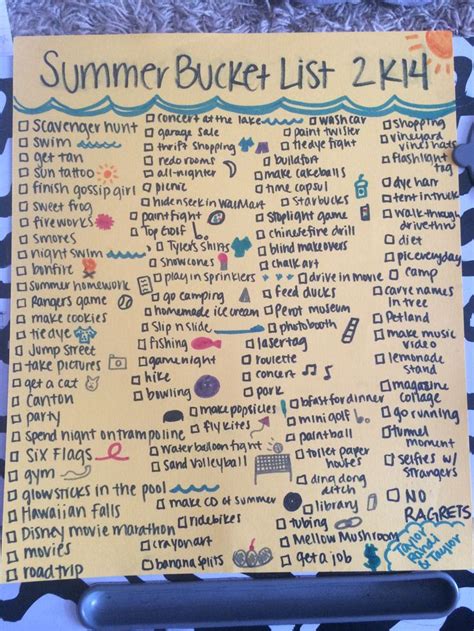 Summer Bucket List 2K14
scavenger hunt
swim
get tan
sun tattoo
finish gossip girl
sweet frog
fireworks
smores
night swim
bonfire
summer homework
Rangers game
make cookies
tie dye
Jump Street
take pictures
get a cat
Canton
party
spend night on trampoline
Six Flags
gym
glowsticks in the pool
Hawaiian falls
Disney movie marathon
movies
road trip
concert at the lake
garage sale
thrift shopping
redo rooms
all-nighter
picnic
hide n seek in WalMart
paint fight
Top Golf
Tyler's shirts
snowcones
play in sprinklers
go camping
homemade ice cream
Slip n slide
fishing
game night
hike
bowling
make popsicles
fly kites
water balloon fight
sand volleyball
make CD of summer
ride bikes
crayon art
banana splits
wash car
paint twister
tie dye fight
build fort
make cakeballs
time capsul
Starbucks
stoplight game
chinese fire drill
blind makeovers
chalk art
drive in movie
feed ducks
Perot museum
photobooth
lasertag
roulette
concert
park
bfast for dinner
mini golf
paintball
toilet paper houses
ding dong
ditch
library
tubing
Mellow Mushroom
get a job
shopping
vineyard
vines hats
flashlight
tag
dye hair
tent in truck
walk through
drive thru
diet
pic everyday
camp
carve names
in tree
Petland
make music
video
lemonade
stand
magazine
collage
go running
tunnel
moment
selfies w/
strangers
NO
RAGRETS
Taylor
Randi
& Taylor
$